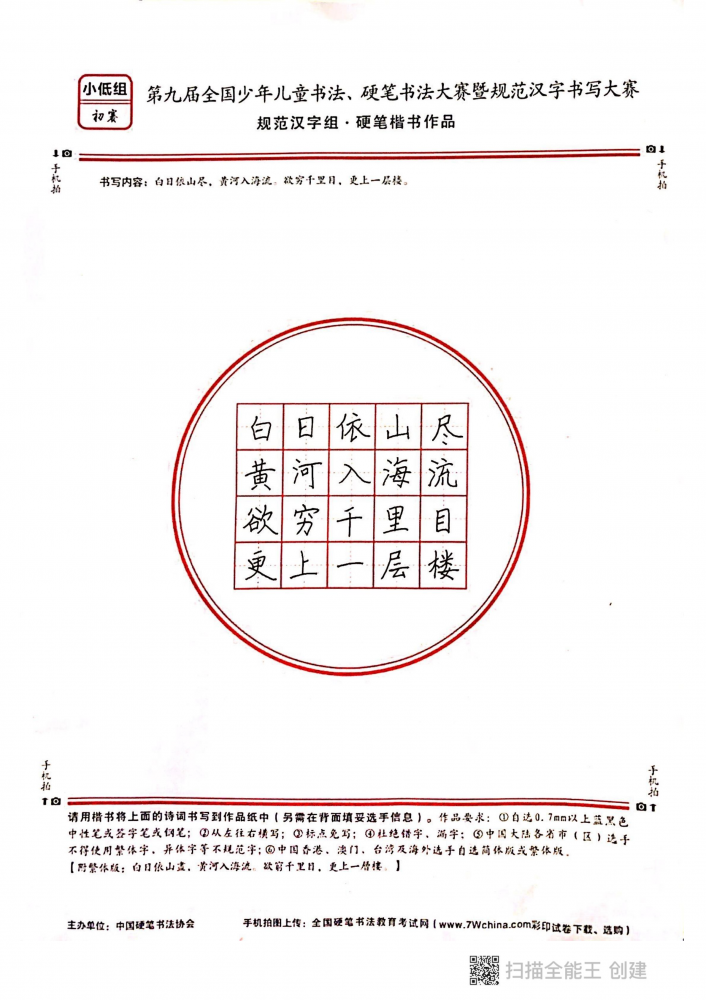 小低组
初赛
第九届全国少年儿童书法、硬笔书法大赛暨规范汉字书写大赛
规范汉字组·硬笔楷书作品
手机拍
手机拍
书写内容：白日依山尽，黄河入海流。欲穷千里目，更上一层楼。
白日依山尽
黄河入海流
欲穷千里目
更上一层楼
手机拍
手机拍
请用楷书将上面的诗词书写到作品纸中（另需在背面填妥选手信息）。作品要求：①自选0.7mm以上蓝黑色
中性笔或签字笔或钢笔；②从左往右横写；③标点免写；④杜绝错字、漏字；⑤中国大陆各省市（区）选手
不得使用繁体字、异体字等不规范字；⑥中国香港、澳门、台湾及海外选手自选简体版或繁体版。
【附繁体版：白日依山盡，黄河入海流。欲窮千里目，更上一層樓。】
主办单位：中国硬笔书法协会
手机拍图上传：全国硬笔书法教育考试网（www.7Wchina.com彩印试卷下载、选购）
扫描全能王 创建